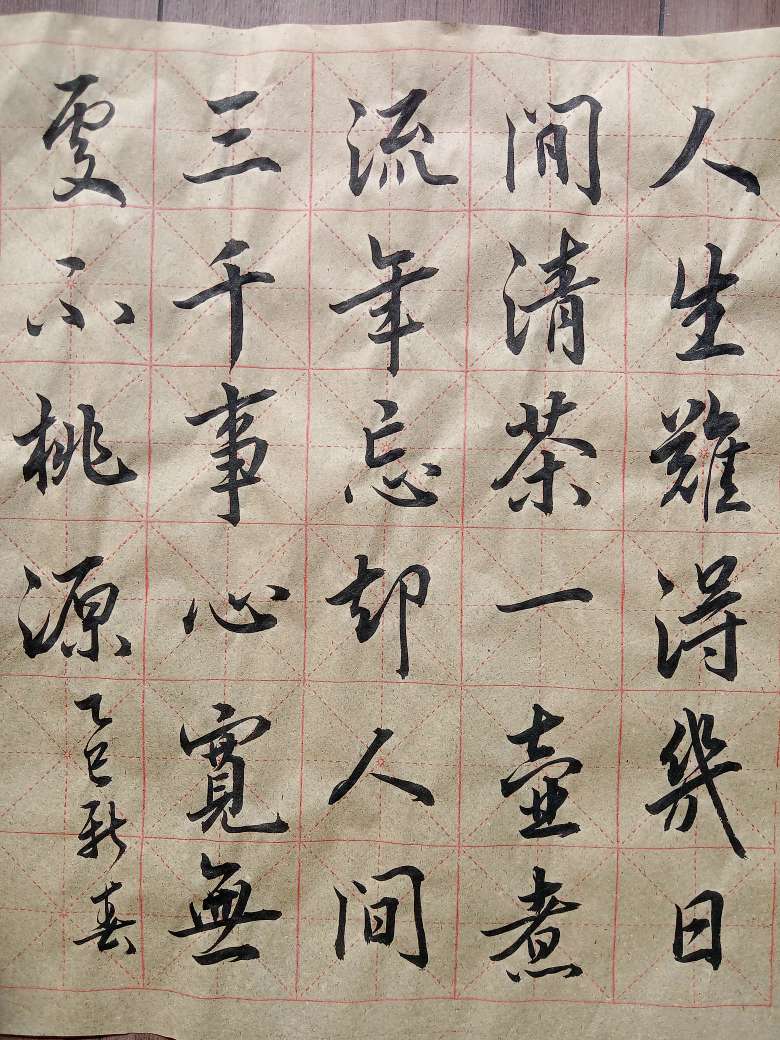 人生難得幾日
间清茶一壷煮
流年忘却人间
三千事心寬無
處不桃源
乙巳新春